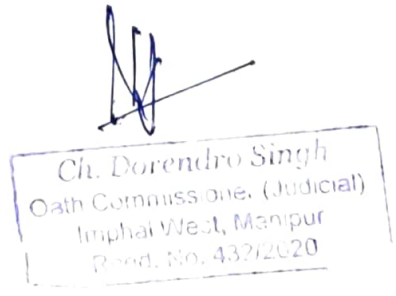 Ch. Dorendro Singh
Oath Commissioner (Judicial)
Imphal West, Manipur
Regd. No. 432/2020